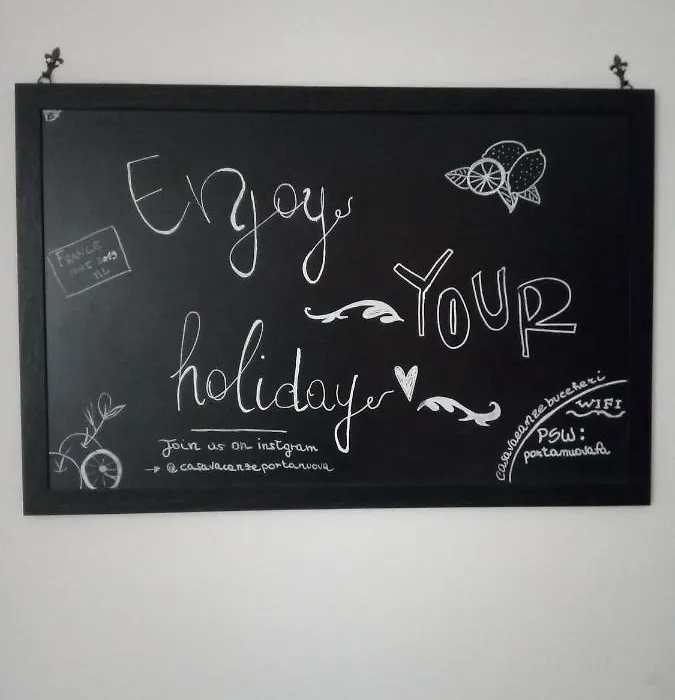 Enjoy
FRANCE
2019
YOUR
holiday
Join us on instgram
→ @casavacanzeportanuova
casavacanzebuccheri
WIFI
PSW:
portanuovafa